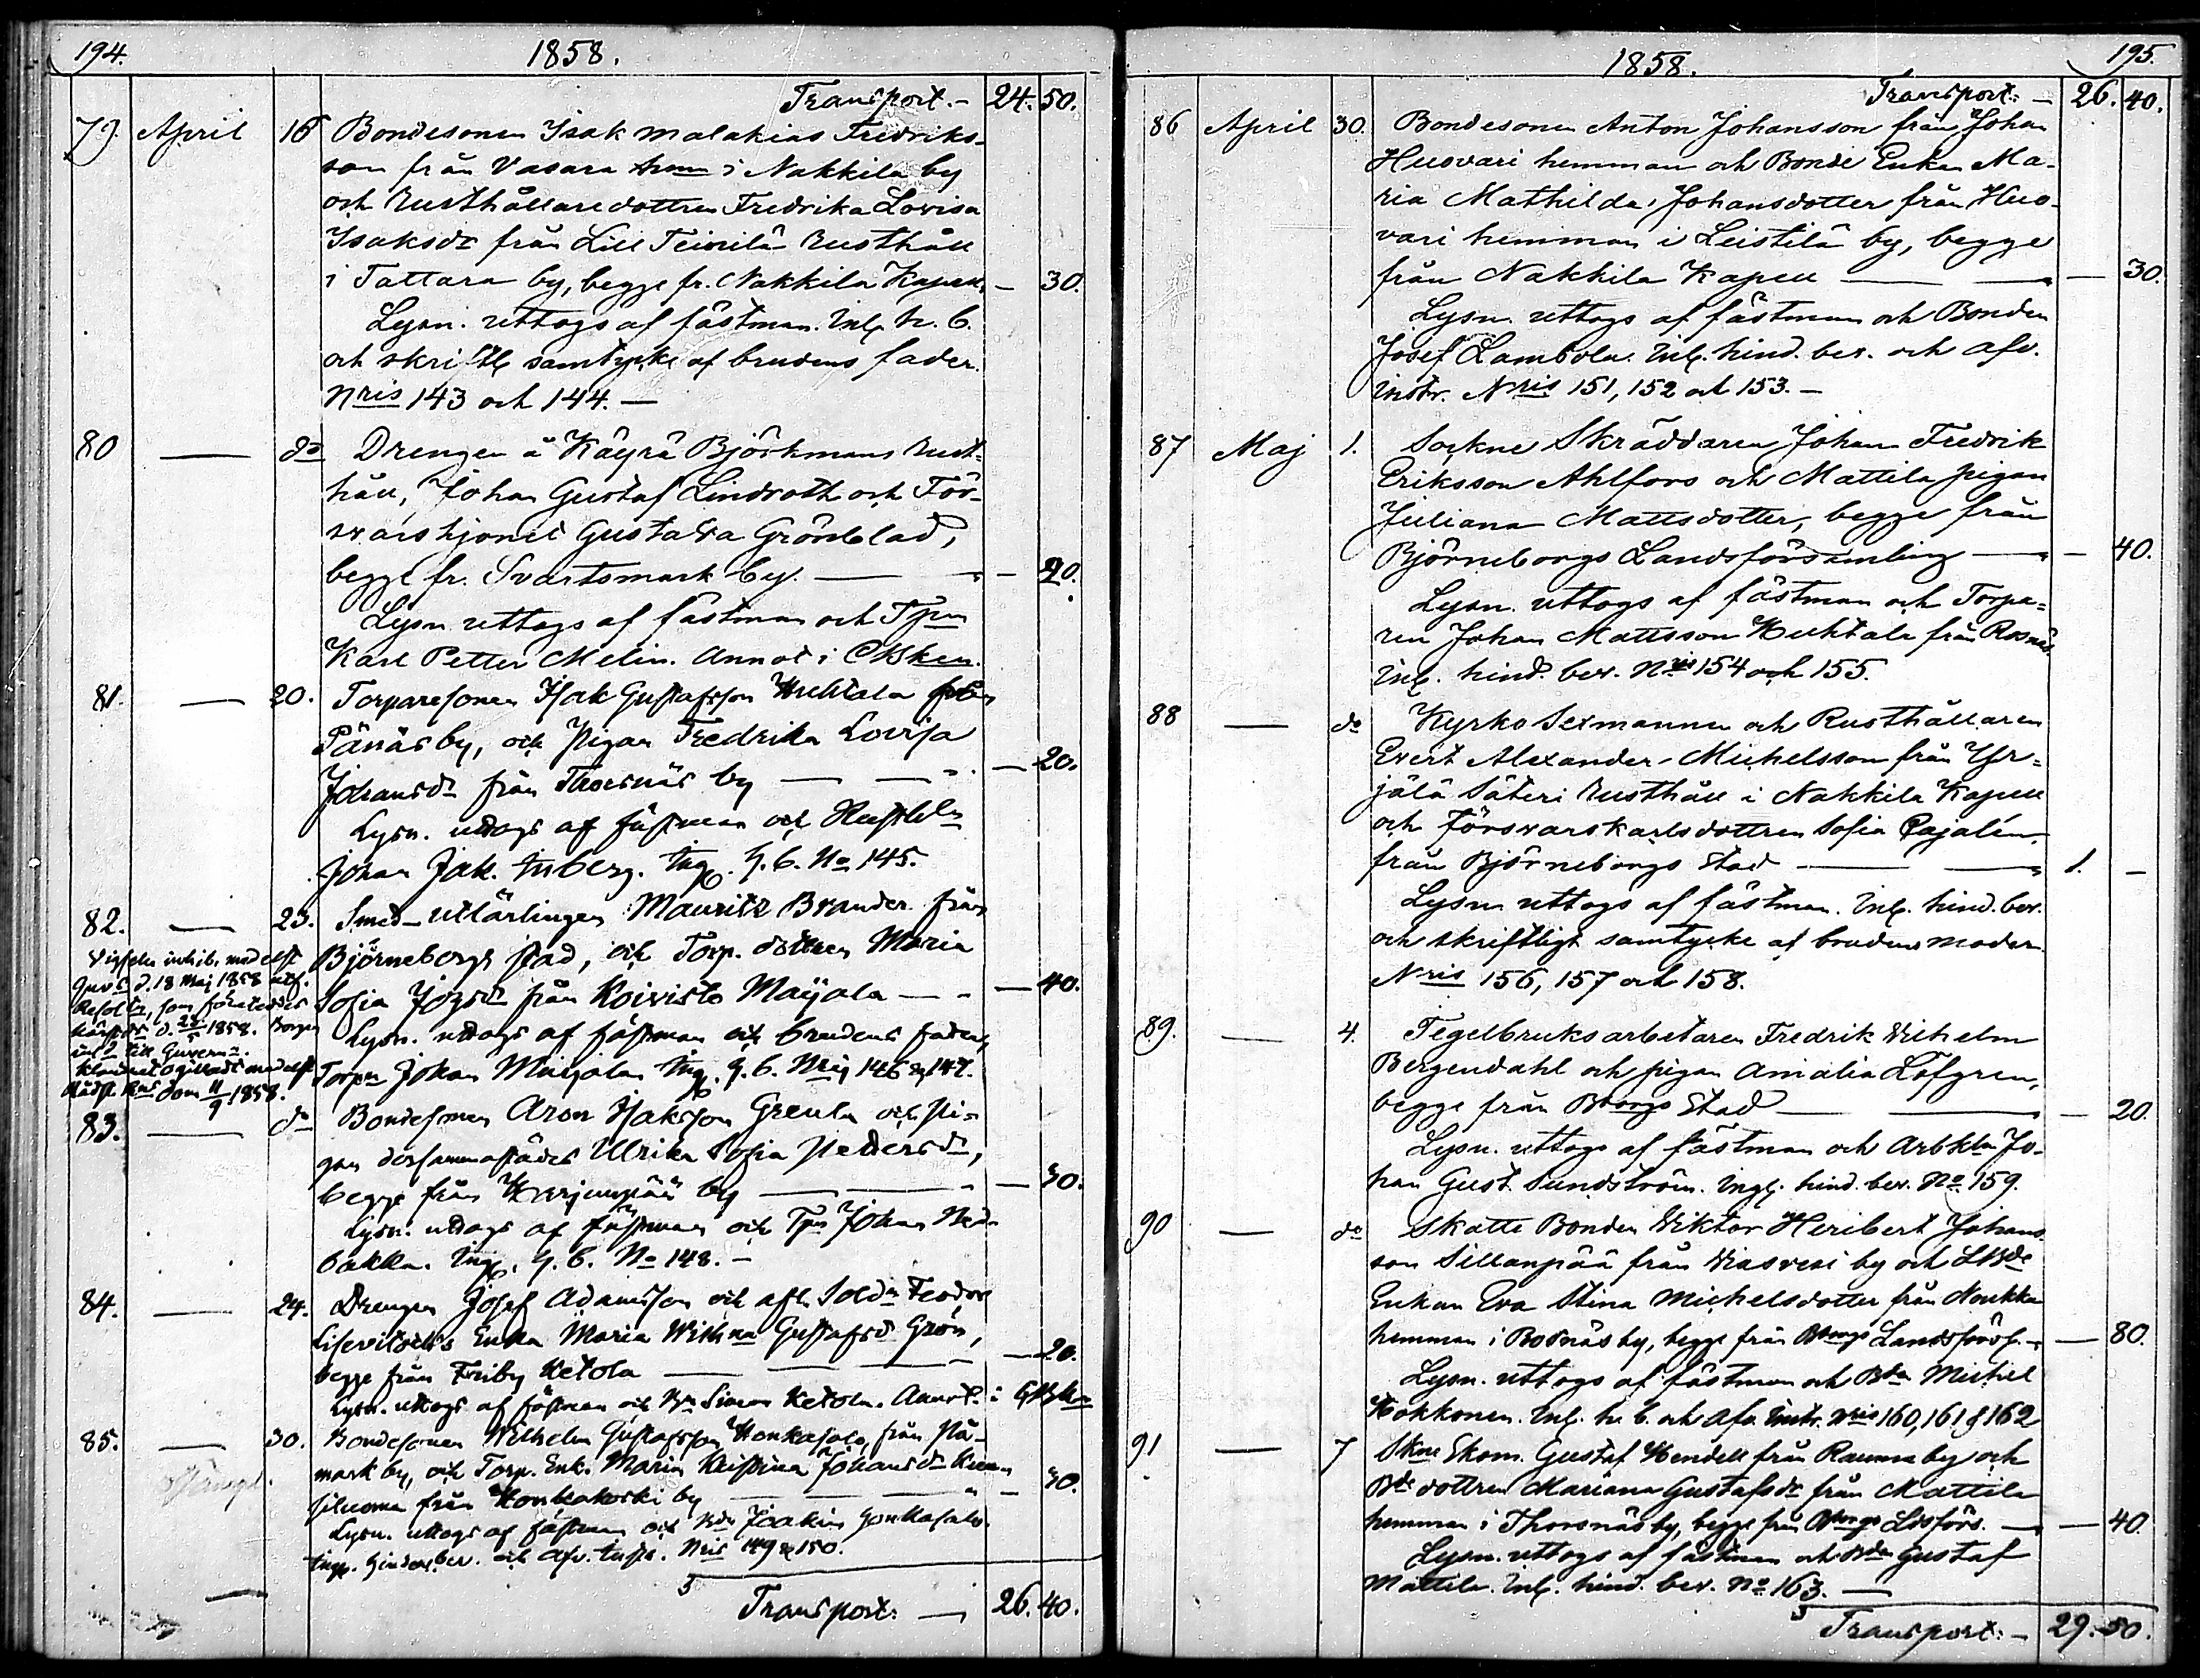 194.
1858.
Transport.- 24. 50.
79. April 16 Bondesonen Isak Malakias Fredriks-
son från Vasara hmn i Nakkila by
och Rusthållaredottren Fredrika Lovisa
Isaksdr från Lill Teinilä Rusthåll
i Tattara by, begge fr. Nakkila Kapell. — 30.
Lysn. uttogs af fästman. Inlg. h. b.
och skriftlg samtycke af brudens fader.
Nris 143 och 144. —
80 — do Drengen å Käyrä Björkmans Rust-
håll, Johan Gustaf Lindroth och För-
svarshjonet Gustava Grönblad,
begge fr. Svartsmark by. — 20.
Lysn. uttogs af fästman och Tpn
Karl Petter Melin. Annot i CKBken.
81. — 20. Torparesonen Isak Gustafsson Huhtala från
Pänäs by, och Pigan Fredrika Lovisa
Johansdr från Thorsnäs by — — 20.
Lysn. uttogs af fästman och
Johan Jak. Inberg. Ing. h. b. No 145.
82. — 23. Smed-Utlärlingen Mauritz Brander från
Björneborgs stad, och Torp. dottren Maria
Sofia Johsdr från Koivisto Maijala — — 40.
Lysn. uttogs af fästman och brudens fader,
Torpn Johan Maijala Ing. h. b. Nris 146 & 147.
Vigseln inhib. medelst
Guvs d. 18 Maj 1858 utf.
Resol, som företeddes
d. 23/5 1858. Borgen
till Guvern.
Klandret ogilladt medelst
Rådst. Rns dom 11/9 1858.
83. — do Bondesonen Aron Isaksson Greula och Pi-
gan dersammastädes Ulrika Sofia Pettersdr,
begge från Harjunpää by — — 30.
Lysn. uttogs af fästman och Tpn Johan
bakka. Ing. h. b. No 148. —
84. — 24. Drengen Josef Adamsson och afl. Soldn Feodor
Enka Maria Withna Gustafsdr Grön,
begge från Friby Ketola — — 20.
Lysn. uttogs af fästman och Bn Simon Ketola. Annot. i CKBken
85. — 30. Bondesonen Wilhelm Gustafsson Honkasalo, från På-
mark by, och Torp. Enk. Maria Kristina Johansdr
från Honkakoski by — — 30.
Lysn. uttogs af fästman och Bdn Joakim Honkasalo.
Ing. hinder.bev. och afv. instr. Nris 149 & 150.
Transport: — 26. 40.
195.
1858.
Transport: — 26. 40.
86 April 30. Bondesonen Anton Johansson från Johan
Husvari hemman och Bonde Enkan Ma-
ria Mathilda Johansdotter från Hus-
vari hemman i Leistilä by, begge
från Nakkila Kapell — — 30.
Lysn. uttogs af fästman och Bonden
Josef Lambola. Inlg. hind. bev. och afv.
instr. Nris 151, 152 och 153. —
87 Maj 1. Sockne Skräddaren Johan Fredrik
Eriksson Ahlfors och Mattila pigan
Juliana Mattsdotter, begge från
Björneborgs Landsförsamling — — 40.
Lysn. uttogs af fästman och Torpa-
ren Johan Mattsson Huhtala från Rosnäs.
Inlg. hind. bev. Nris 154 och 155.
88 — do Kyrko Sexmannen och Rusthållaren
Evert Alexander Michelsson från Yr-
jälä Säteri Rusthåll i Nakkila Kapell
och Försvarskarlsdottren Sofia Pajalén,
från Björneborgs stad — 1. —
Lysn uttogs af fästman. Inlg. hind. bev.
och skriftligt samtycke af brudens moder.
Nris 156, 157 och 158.
89. — 4. Tegelbruksarbetaren Fredrik Wilhelm
Bergendahl och pigan Amalia Löfgren,
begge från Bborgs Stad — — 20.
Lysn. uttogs af fästman och Arbkln Jo-
han Gust. Sundström. Inglg. hind. bev. No 159.
90 — do Skatte Bonden Wiktor Heribert Johans-
son Sillanpää från Wiasvesi by och
Enkan Eva Stina Michelsdotter från Noukka
hemman i Rosnäs by, begge från Bborgs Landsförs. — 80.
Lysn. uttogs af fästman och Bdn Michel
Kokkonen. Inlg. h. b. och afv. instr. Nris 160, 161 & 162
91 — 7 Skne Skom. Gustaf Hendell från Rauma by och
Bde dottren Mariana Gustafsdr från Mattila
hemman i Thorsnäs by, begge från Bborgs Ldsförs. — 40.
Lysn. uttogs af fästman och Bdn Gustaf
Mattila. Inlg. hind. bev. No 163. —
Transport: — 29. 50.